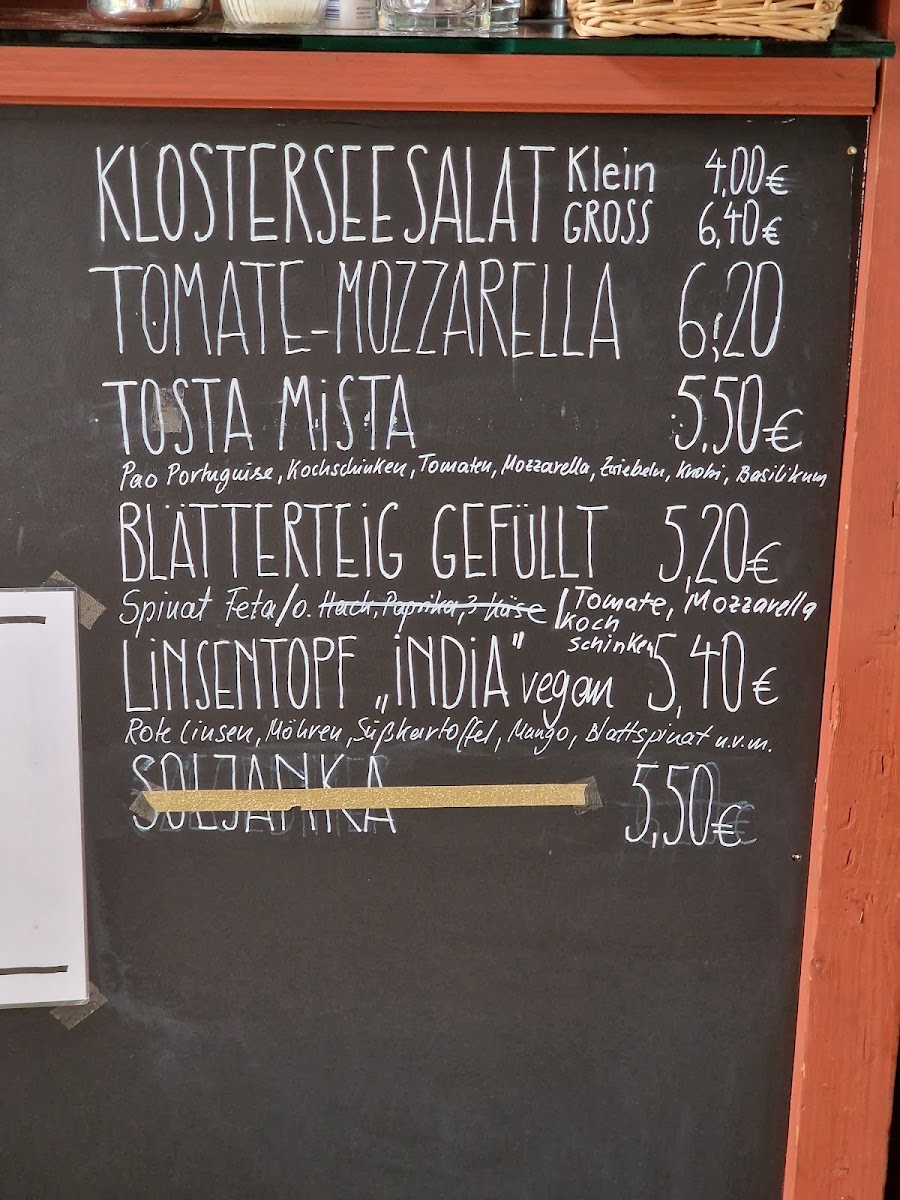 KLOSTERSEESALAT Klein 4,00€
GROSS 6,40€
TOMATE-MOZZARELLA 6,20
TOSTA MiSTA 5,50€
Pao Portuguise, Kochschinken, Tomaten, Mozzarella, Zwiebeln, Knobi, Basilikum
BLÄTTERTEiG GEFÜLLT 5,20€
Spinat Feta/o. Hack, Paprika, Käse / Tomate, Mozzarella
Koch
schinken
LiNSENTOPF „iNDiA" vegan 5,40€
Rote Linsen, Möhren, Süßkartoffel, Mango, Blattspinat u.v.m.
SOLJANKA 5,50€